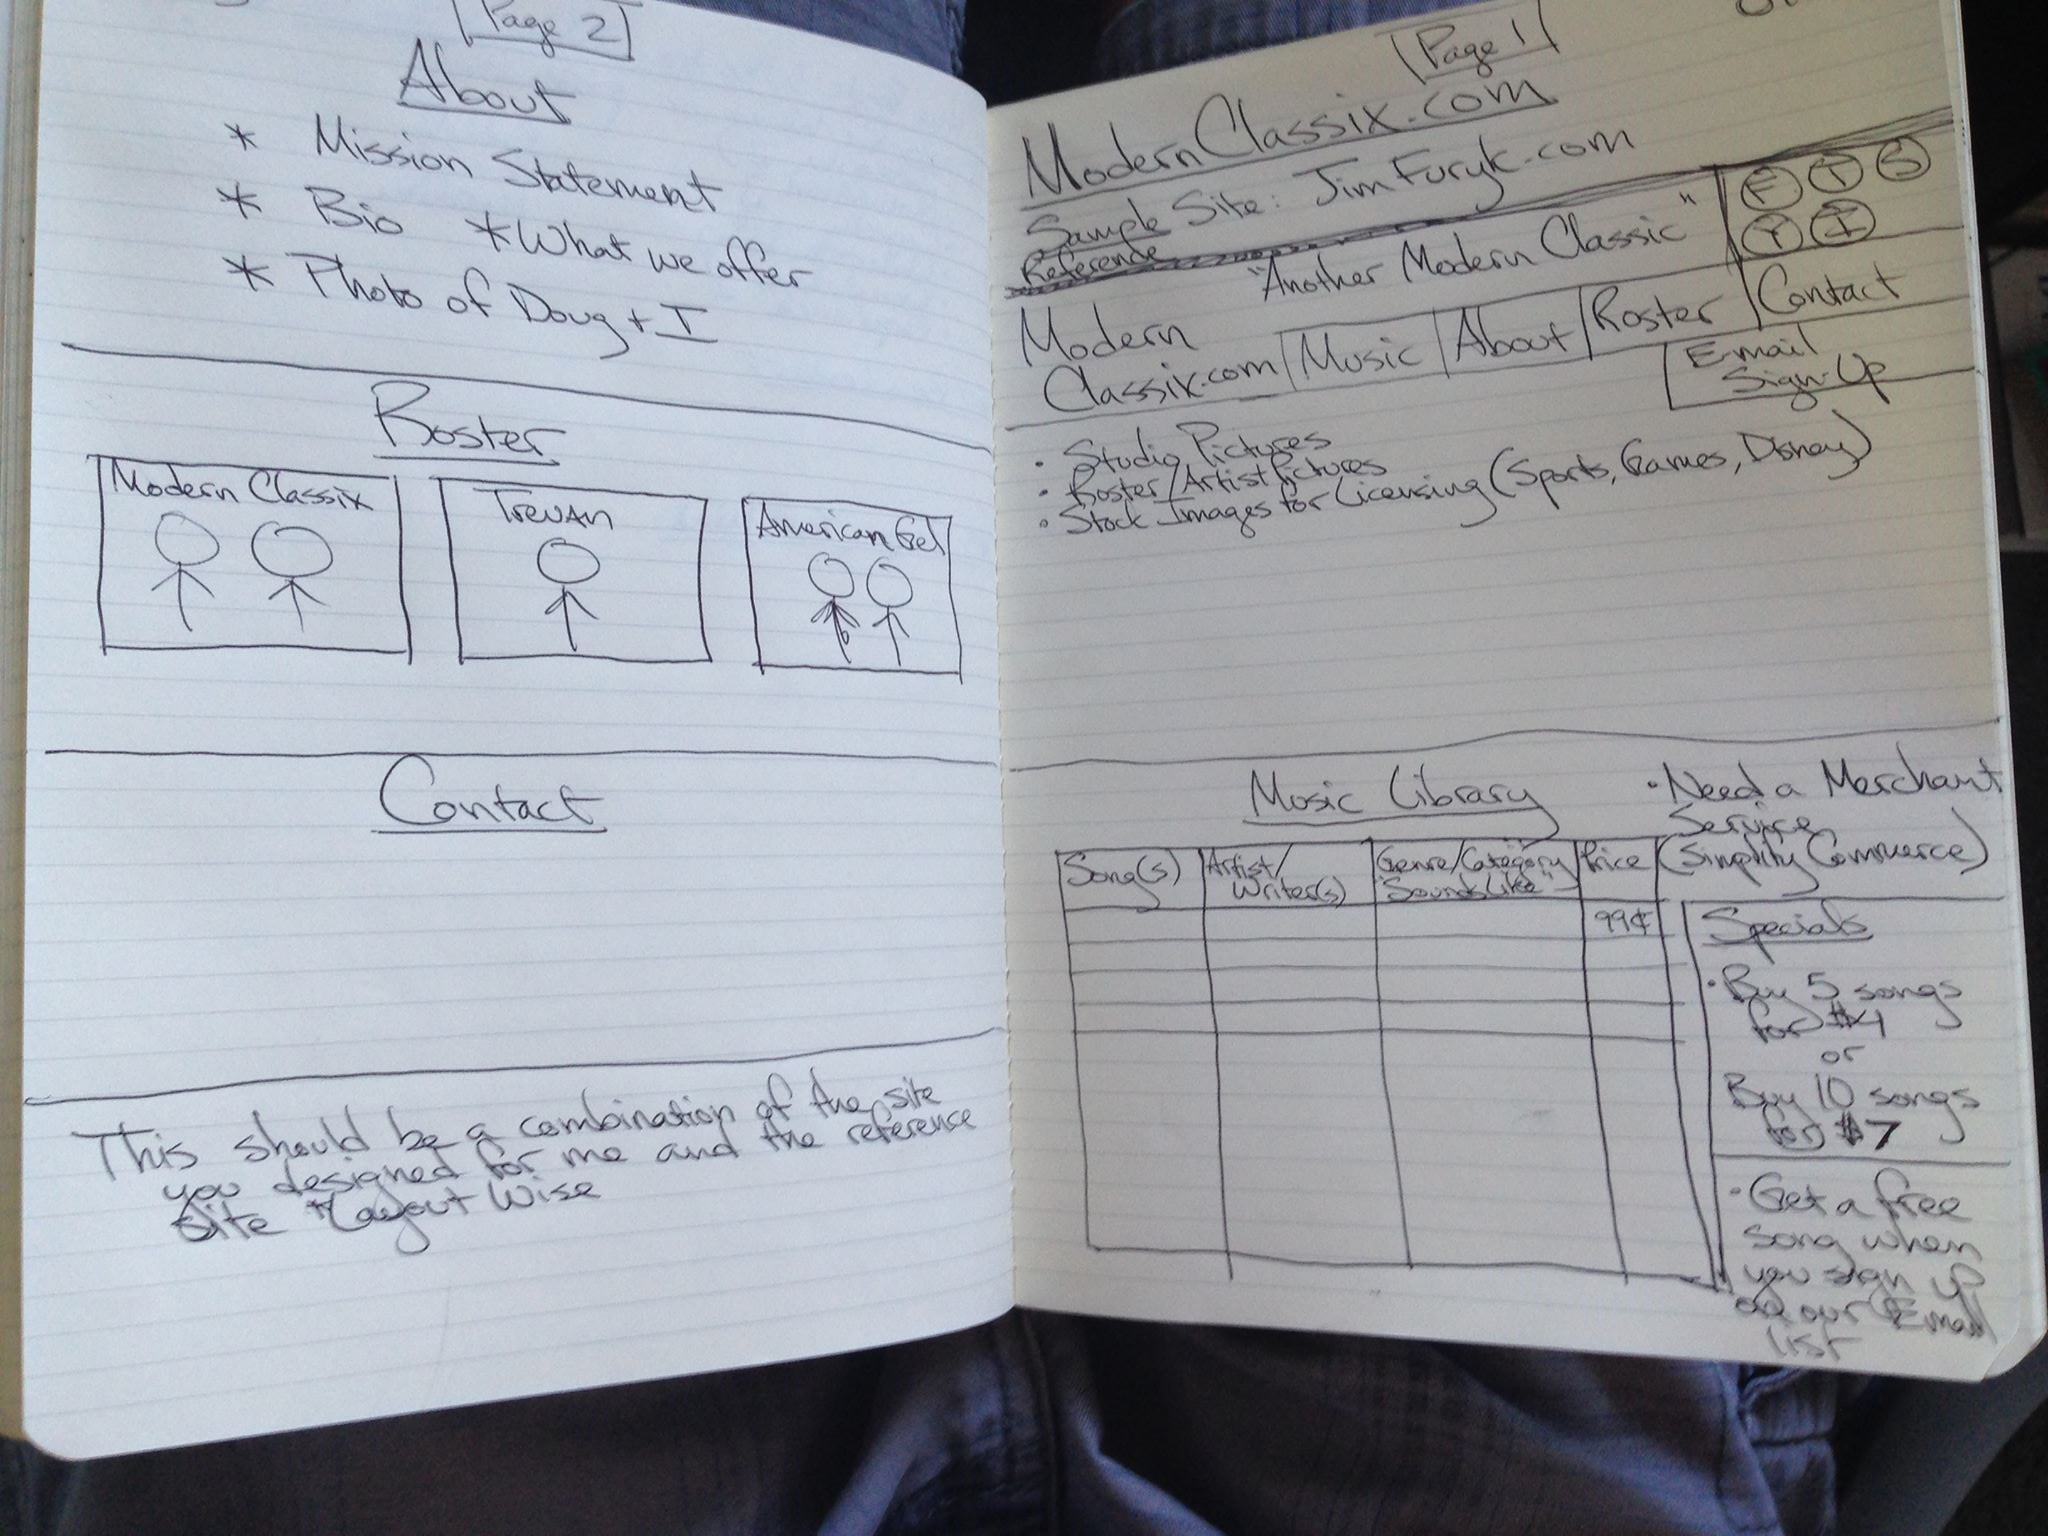 Page 2
About
* Mission Statement
* Bio * What we offer
* Photo of Doug + I
Roster
Modern Classix
Trevan
American Gel
Contact
This should be a combination of the site
you designed for me and the reference
site Layout Wise
Page 1
ModernClassix.com
Sample Site: JimFuryk.com
Reference
"Another Modern Classic"
F T S
Y I
Modern
Classix.com | Music | About | Roster | Contact
E-mail
Sign-Up
• Studio Pictures
• Roster/Artist Pictures
• Stock Images for Licensing (Sports, Games, Disney)
Music Library
• Need a Merchant
Service
(Simplify Commerce)
Song(s)
Artist/
Writer(s)
Genre/Category
"Sounds Like"
Price
99¢
Specials
• Buy 5 songs
for $4
or
Buy 10 songs
for $7
• Get a free
song when
you sign up
on our Email
list